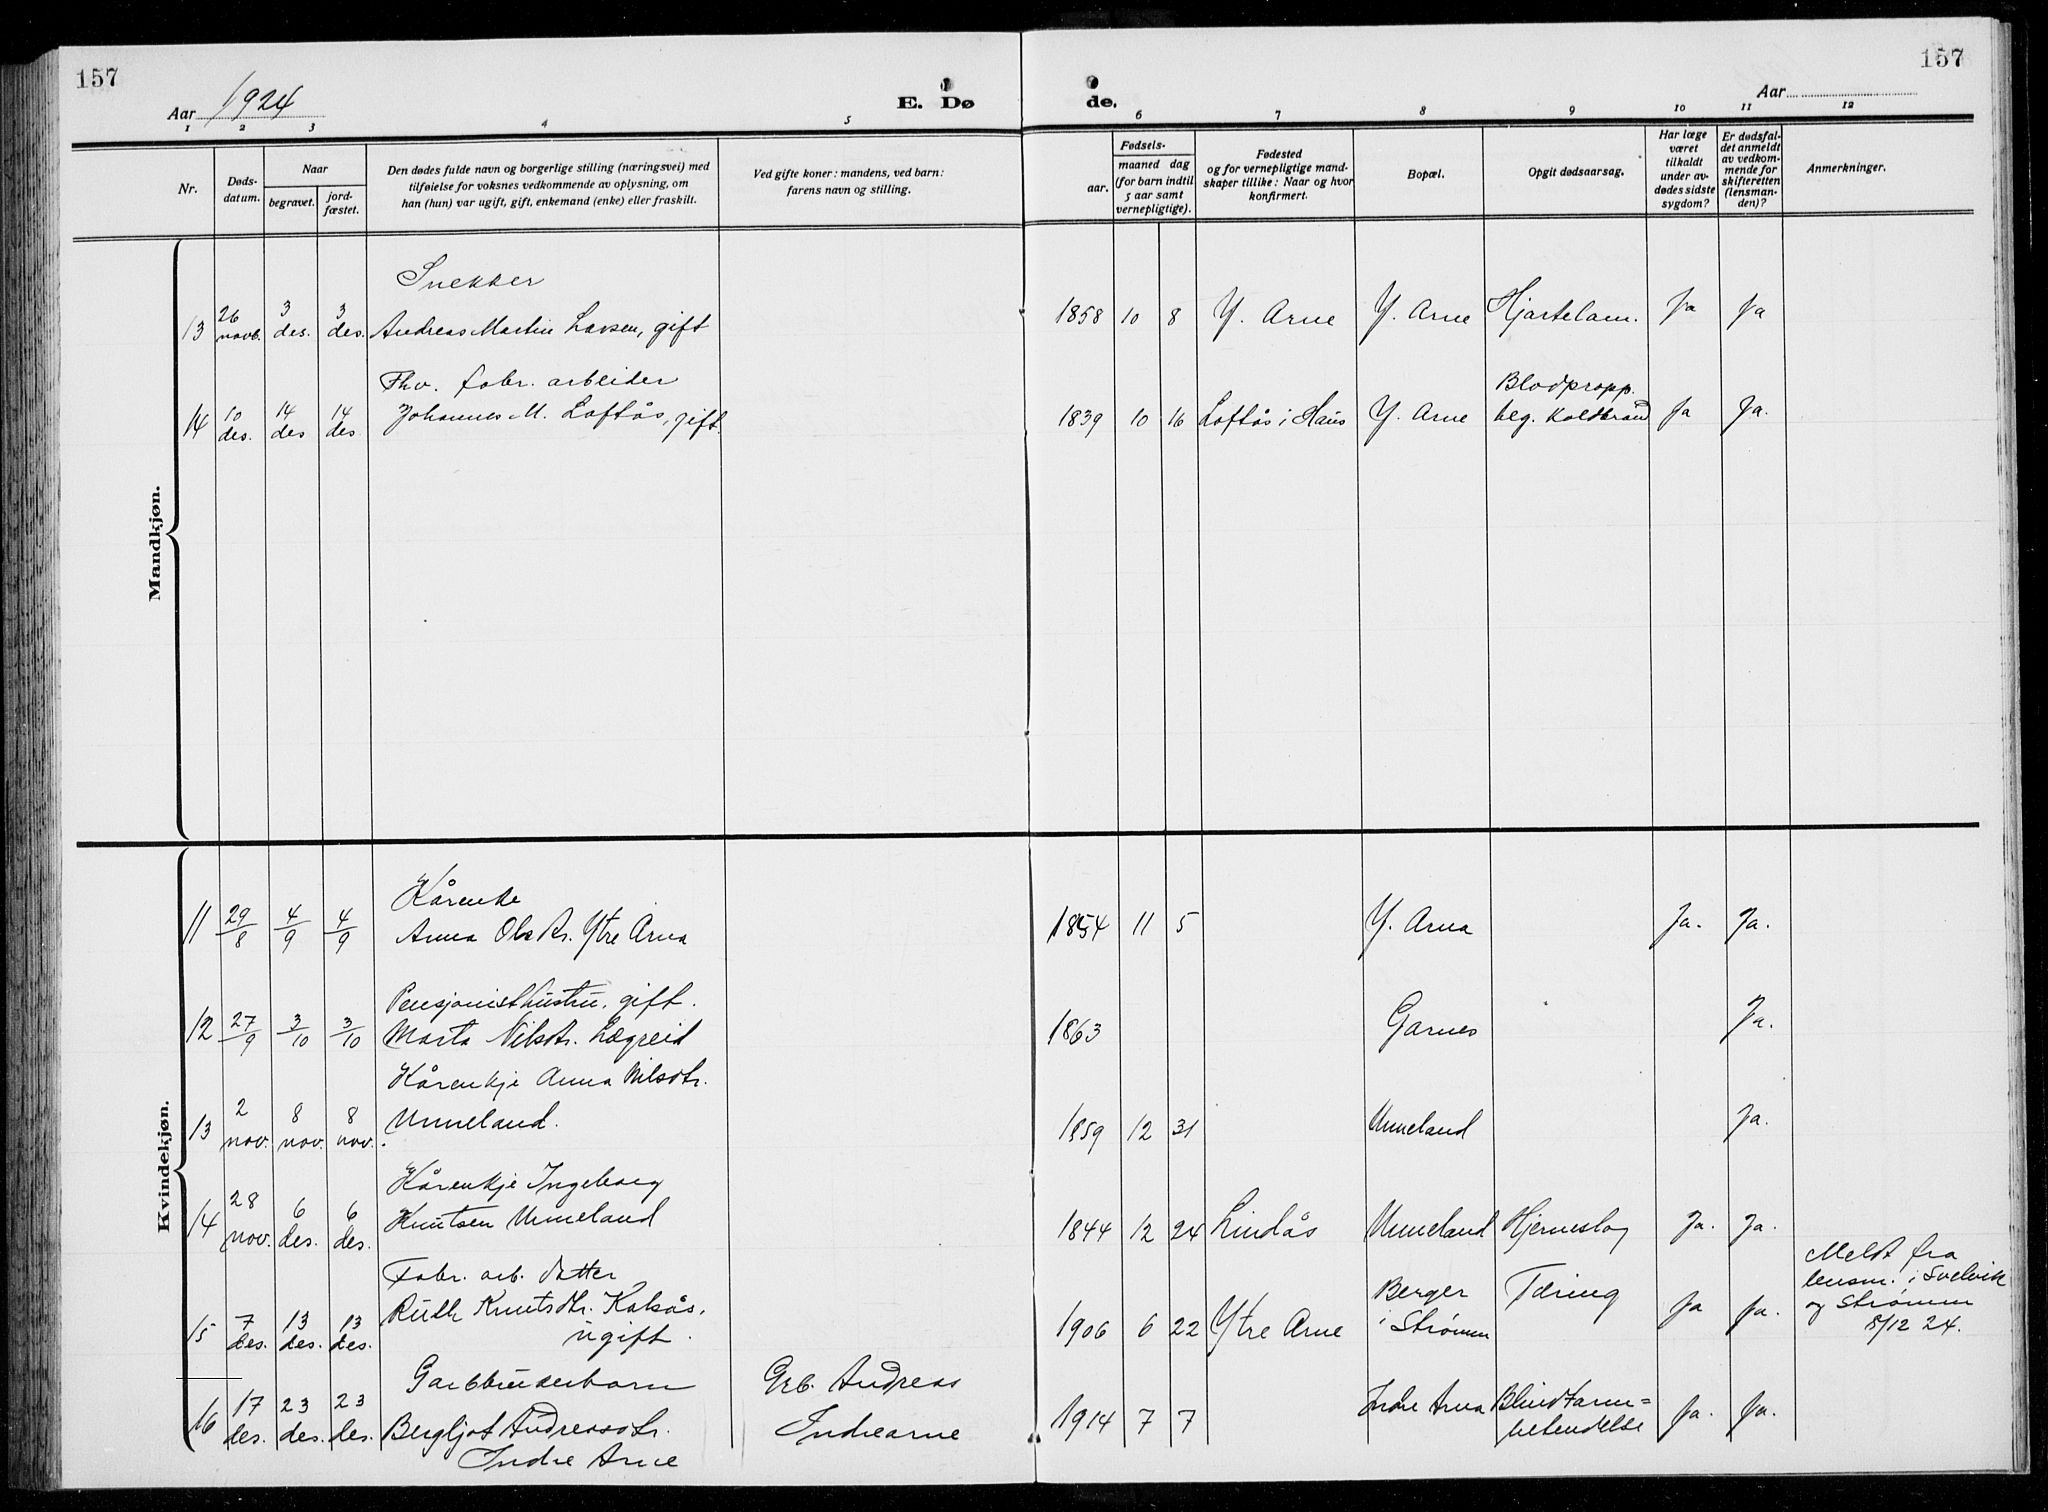 157
157
Aar 1924
E. Dø
de.
Aar
1 2 3 4 5 6 7 8 9 10 11 12
Nr.
Døds-
datum.
Naar
begravet.
jord-
fæstet.
Den dødes fulde navn og borgerlige stilling (næringsvei) med
tilføielse for voksnes vedkommende av oplysning, om
han (hun) var ugift, gift, enkemand (enke) eller fraskilt.
Ved gifte koner: mandens, ved barn:
farens navn og stilling.
Fødsels-
aar.
maaned dag
(for barn indtil
5 aar samt
vernepligtige).
Fødested
og for vernepligtige mand-
skaper tillike: Naar og hvor
konfirmert.
Bopæl.
Opgit dødsaarsag.
Har læge
været
tilkaldt
under av-
dødes sidste
sygdom?
Er dødsfal-
det anmeldt
av vedkom-
mende for
skifteretten
(lensman-
den)?
Anmerkninger.
Mandkjøn.
Snekker
13 26 novb. 3 des. 3 des. Andreas Martin Larsen, gift 1858 10 8 Y. Arne Y. Arne Hjartelam. Ja Ja
Fhv. fabr. arbeider
Blodpropp.
14 10 des. 14 des 14 des. Johannes M. Loftås, gift. 1839 10 16 Loftås i Haus Y. Arne beg. koldbrand Ja Ja.
Kvindekjøn.
Kårenke
11 29/8 4/9 4/9 Anna Olsdtr. Ytre Arna 1854 11 5 Y. Arna Ja. Ja.
Pensjonisthustru, gift.
12 27/9 3/10 3/10 Marta Nilsdtr. Lægreid 1863 Garnes Ja.
Kårenkje Anna Nilsdtr.
13 2 nov. 8 nov. 8 nov. Unneland. 1859 12 31 Unneland Ja.
Kårenkje Ingeborg
14 28 nov. 6 des. 6 des. Knutsen Unneland 1844 12 24 Lindås Unneland Hjerneslag Ja. Ja.
Fabr. arb. datter
15 7 des. 13 des. 13 des. Ruth Knutsdtr. Kalsås,
ugift.
1906 6 22 Ytre Arne Berger
i Strømm
Tæring Ja Ja. Meldt fra
lensm. i Svelvik
og Strømm
8/12 24.
Garbbruderbarn Grb. Andreas
16 17 des. 23 des. 23 des. Bergljot Andreasdtr.
Indre Arne
Indrearne 1914 7 7 Indre Arna Blindtarm=
betendelse Ja. Ja.